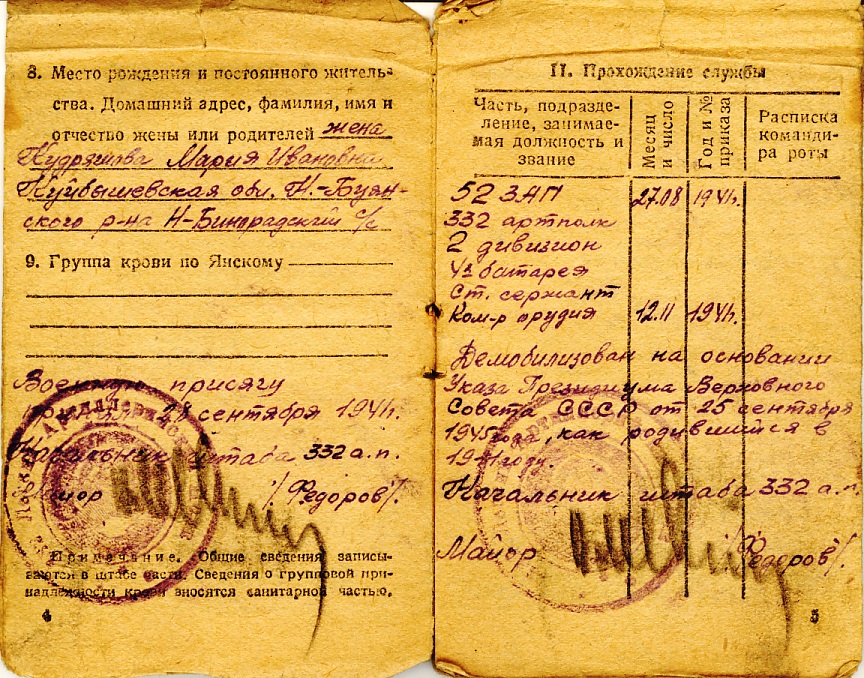 8. Место рождения и постоянного житель-
ства. Домашний адрес, фамилия, имя и
отчество жены или родителей жена
Кудряшова Мария Ивановна
Куйбышевская обл. Н.-Буян-
ского р-на Н-Бинорадский с/с
9. Группа крови по Янскому
Военную присягу
28 сентября 1941г.
Начальник штаба 332 а.п.
Майор /Федоров/.
Примечание. Общие сведения записы-
ваются в штабе части. Сведения о групповой при-
надлежности крови вносятся санитарной частью.
4
II. Прохождение службы
Часть, подразде-
ление, занимае-
мая должность и
звание
Месяц
и число
Год и №
приказа
Расписка
команди-
ра роты
52 ЗАП 27.08 1941г.
332 артполк
2 дивизион
4я батарея
Ст. сержант
Ком-р орудия 12.11 1941г.
Демобилизован на основании
Указа Президиума Верховного
Совета СССР от 25 сентября
1945 года, как родившийся в
году.
Начальник штаба 332 а.п.
Майор /Федоров/.
5